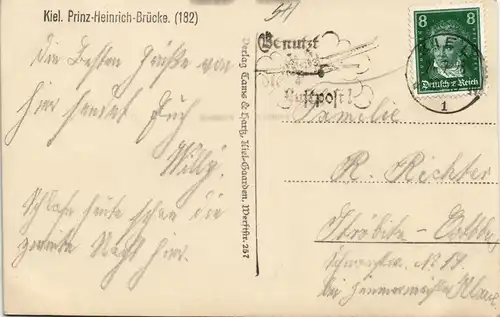 Kiel. Prinz-Heinrich-Brücke. (182)
Die besten Grüße von
hier sendet Euch
Willy.
Schlafe heute schon die
zweite Nacht hier.
Verlag Tams & Hartz, Kiel-Gaarden, Werftstr. 257
Benutzt
die
Luftpost!
8 8
Deutsches Reich
KIEL
1
Familie
R. Richter
Ströbitz - Cottbus
Schwarzstr. No 54
bei